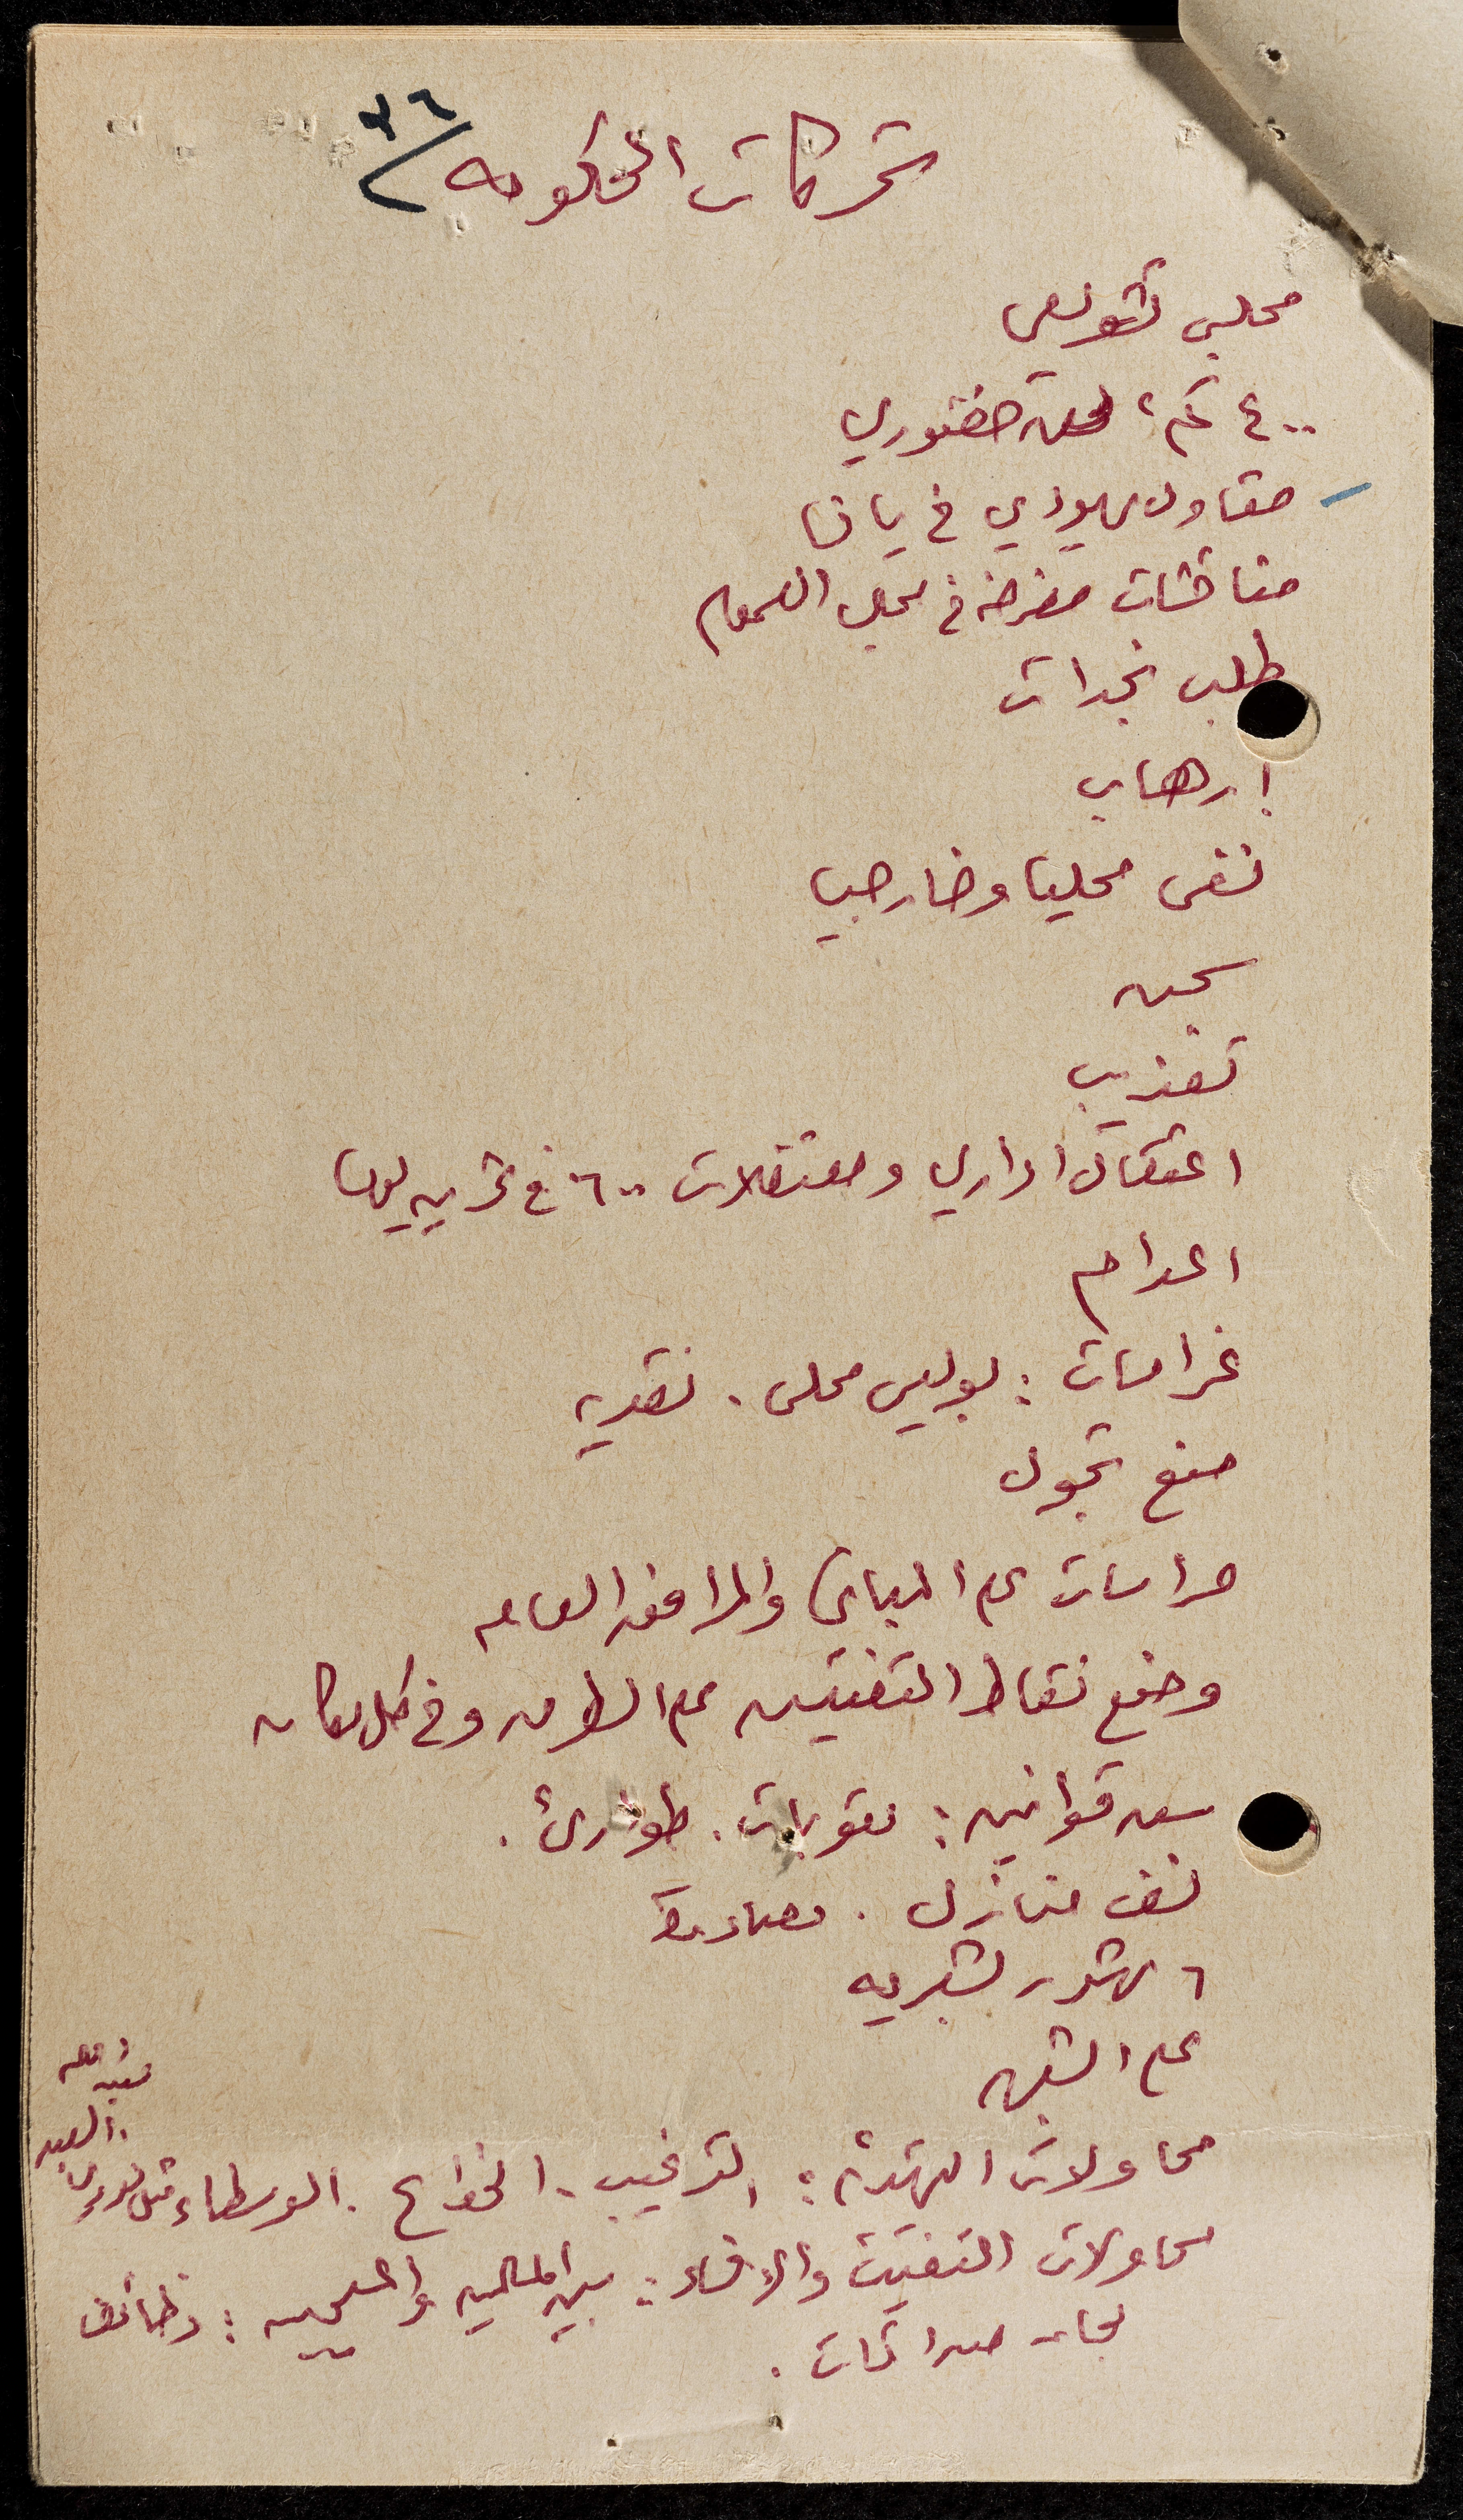 تحركات الحكومه ٣٦
مجلس تشريعي
٤٠٠ كم، دستوري
مقاول يهودي في يافا
مناقشات مغرضه في مجلس العموم
طلب نجدات
إرهاب
نفي محليا وخارجيا
سجن
تعذيب
اعتقال اداري ومعتقلات ٦٠٠ في
اعدام
غرامات : بوليس محلي . نقديه
منع تجول
حراسات على المباني والمرافق العامه
وضع نقاط التفتيش على الطرق وفي كل مكان
سن قوانين : عقوبات . طوارئ .
نسف منازل . مصادرة
٦ بشريه
على الشبهه
محاولات التهدئه : الترغيب . الخداع . الوسطاء مثل نوري السعيد
محاولات التفتيت والافساد : بين المسلمين والمسيحيين : وظائف
لجان صداقات .